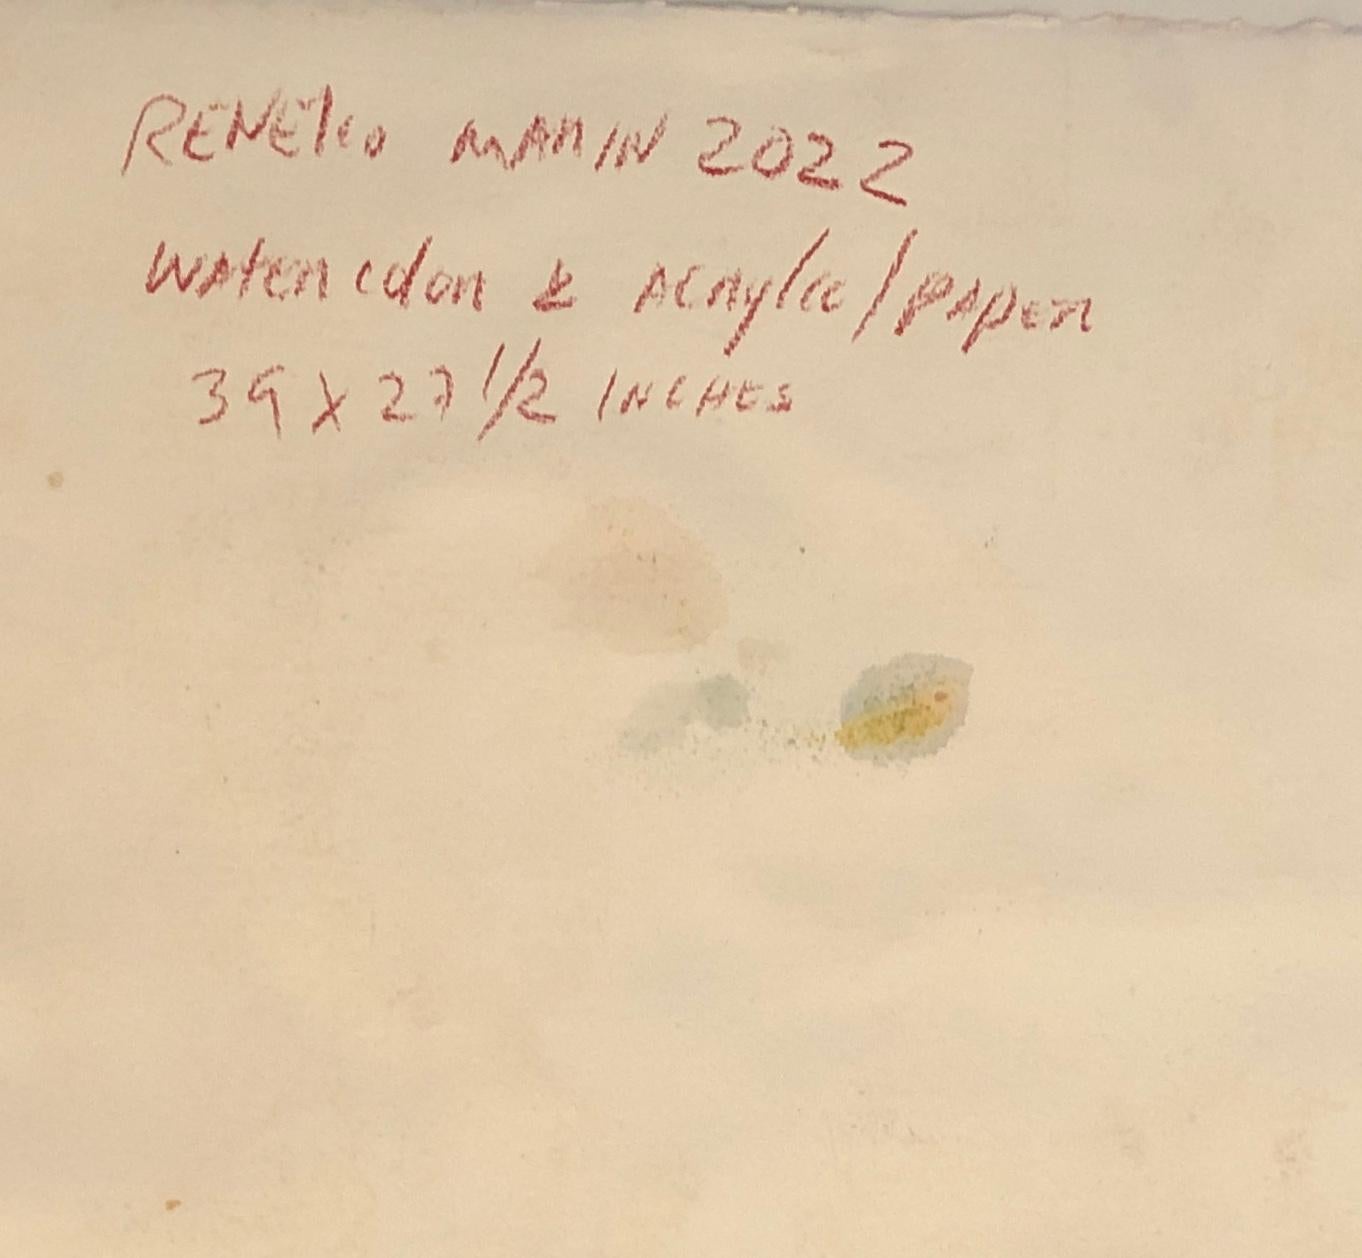 RENElio MARIN 2022
WATERcolor & Acrylic/PAPER
39 X 27 1/2 INCHES